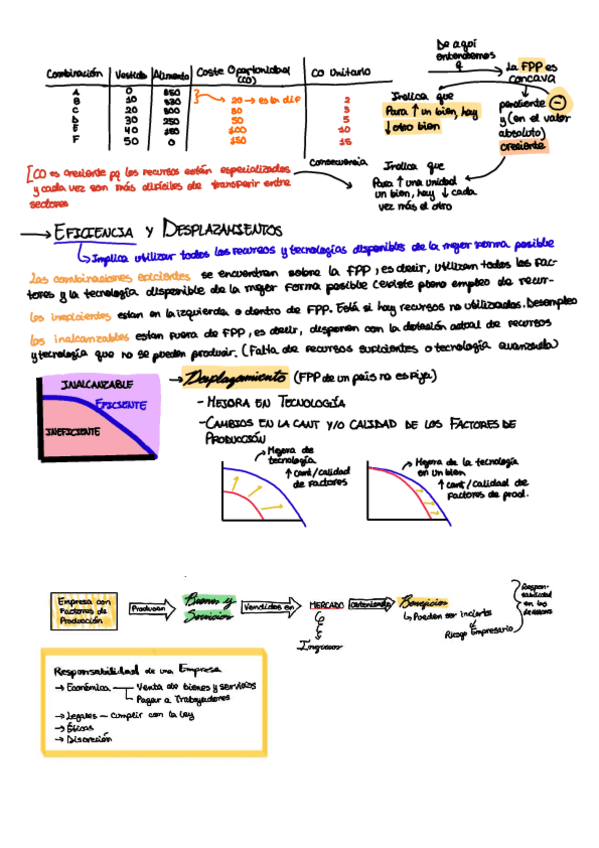 De aquí
entendemos
q
La FPP es
concava
Combinación Vestido Alimento Coste Oportunidad (CO) CO Unitario
A 0 550
B 10 530 20 → es la dif 2
C 20 500 30 3
D 30 250 50 5
E 40 150 100 10
F 50 0 150 15
Indica que
Para ↑ un bien, hay
↓ otro bien
pendiente −
y (en el valor
absoluto)
creciente
[CO es creciente pq los recursos están especializados
y cada vez son más difíciles de transferir entre
sectores
Consecuencia
Indica que
Para ↑ una unidad
un bien, hay ↓ cada
vez más el otro
→ EFICIENCIA Y DESPLAZAMIENTOS
Implica utilizar todos los recursos y tecnologías disponibles de la mejor forma posible
Las combinaciones eficientes se encuentran sobre la FPP, es decir, utilizan todos los fac-
tores y la tecnología disponible de la mejor forma posible (existe pleno empleo de recur-
los ineficientes estan en la izquierda o dentro de FPP. Está si hay recursos no utilizados. Desempleo
los inalcanzables estan fuera de FPP, es decir, disponen con la dotación actual de recursos
y tecnología que no se pueden producir. (Falta de recursos suficientes o tecnología avanzada)
INALCANZABLE
EFICIENTE
INEFICIENTE
→ Desplazamiento (FPP de un país no es fija)
- MEJORA EN TECNOLOGÍA
- CAMBIOS EN LA CANT Y/O CALIDAD DE LOS FACTORES DE
PRODUCCIÓN
Mejora de
tecnología
↑ cant/calidad
de factores
Mejora de la tecnología
en un bien
↑ cant/calidad de
factores de prod.
Empresa con
Factores de
Producción
Producen
Bienes y
Servicios
Vendidos en
MERCADO
obteniendo
Beneficios
Pueden ser inciertos
Riesgo Empresario
Respon-
sabilidad
en las
decisiones
Ingresos
Responsabilidad de una Empresa
→ Económica — Venta de bienes y servicios
Pagar a Trabajadores
→ Legales — cumplir con la ley
→ Éticas
→ Discreción